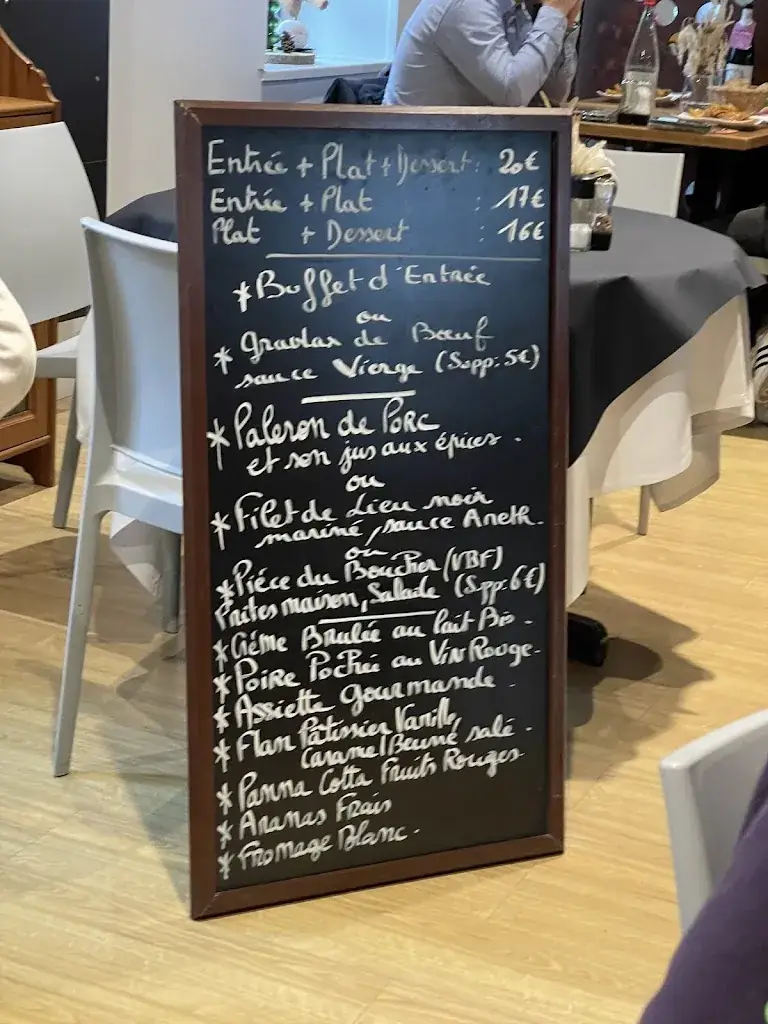 Entrée + Plat + Dessert : 20€
Entrée + Plat : 17€
Plat + Dessert : 16€
*Buffet d'Entrée
ou
* Gravlax de Bœuf
sauce Vierge (Supp: 5€)
*Paleron de Porc
et son jus aux épices.
ou
*Filet de Lieu noir
mariné, sauce Aneth.
ou
*Piéce du Boucher (VBF)
Frites maison, Salade (Spp: 6€)
*Crème Brulée au lait Bio.
*Poire Pochée au Vin Rouge.
*Assiette gourmande.
*Flan Pâtissier Vanille,
Caramel Beurre salé.
*Panna Cotta Fruits Rouges
*Ananas Frais
*Fromage Blanc.